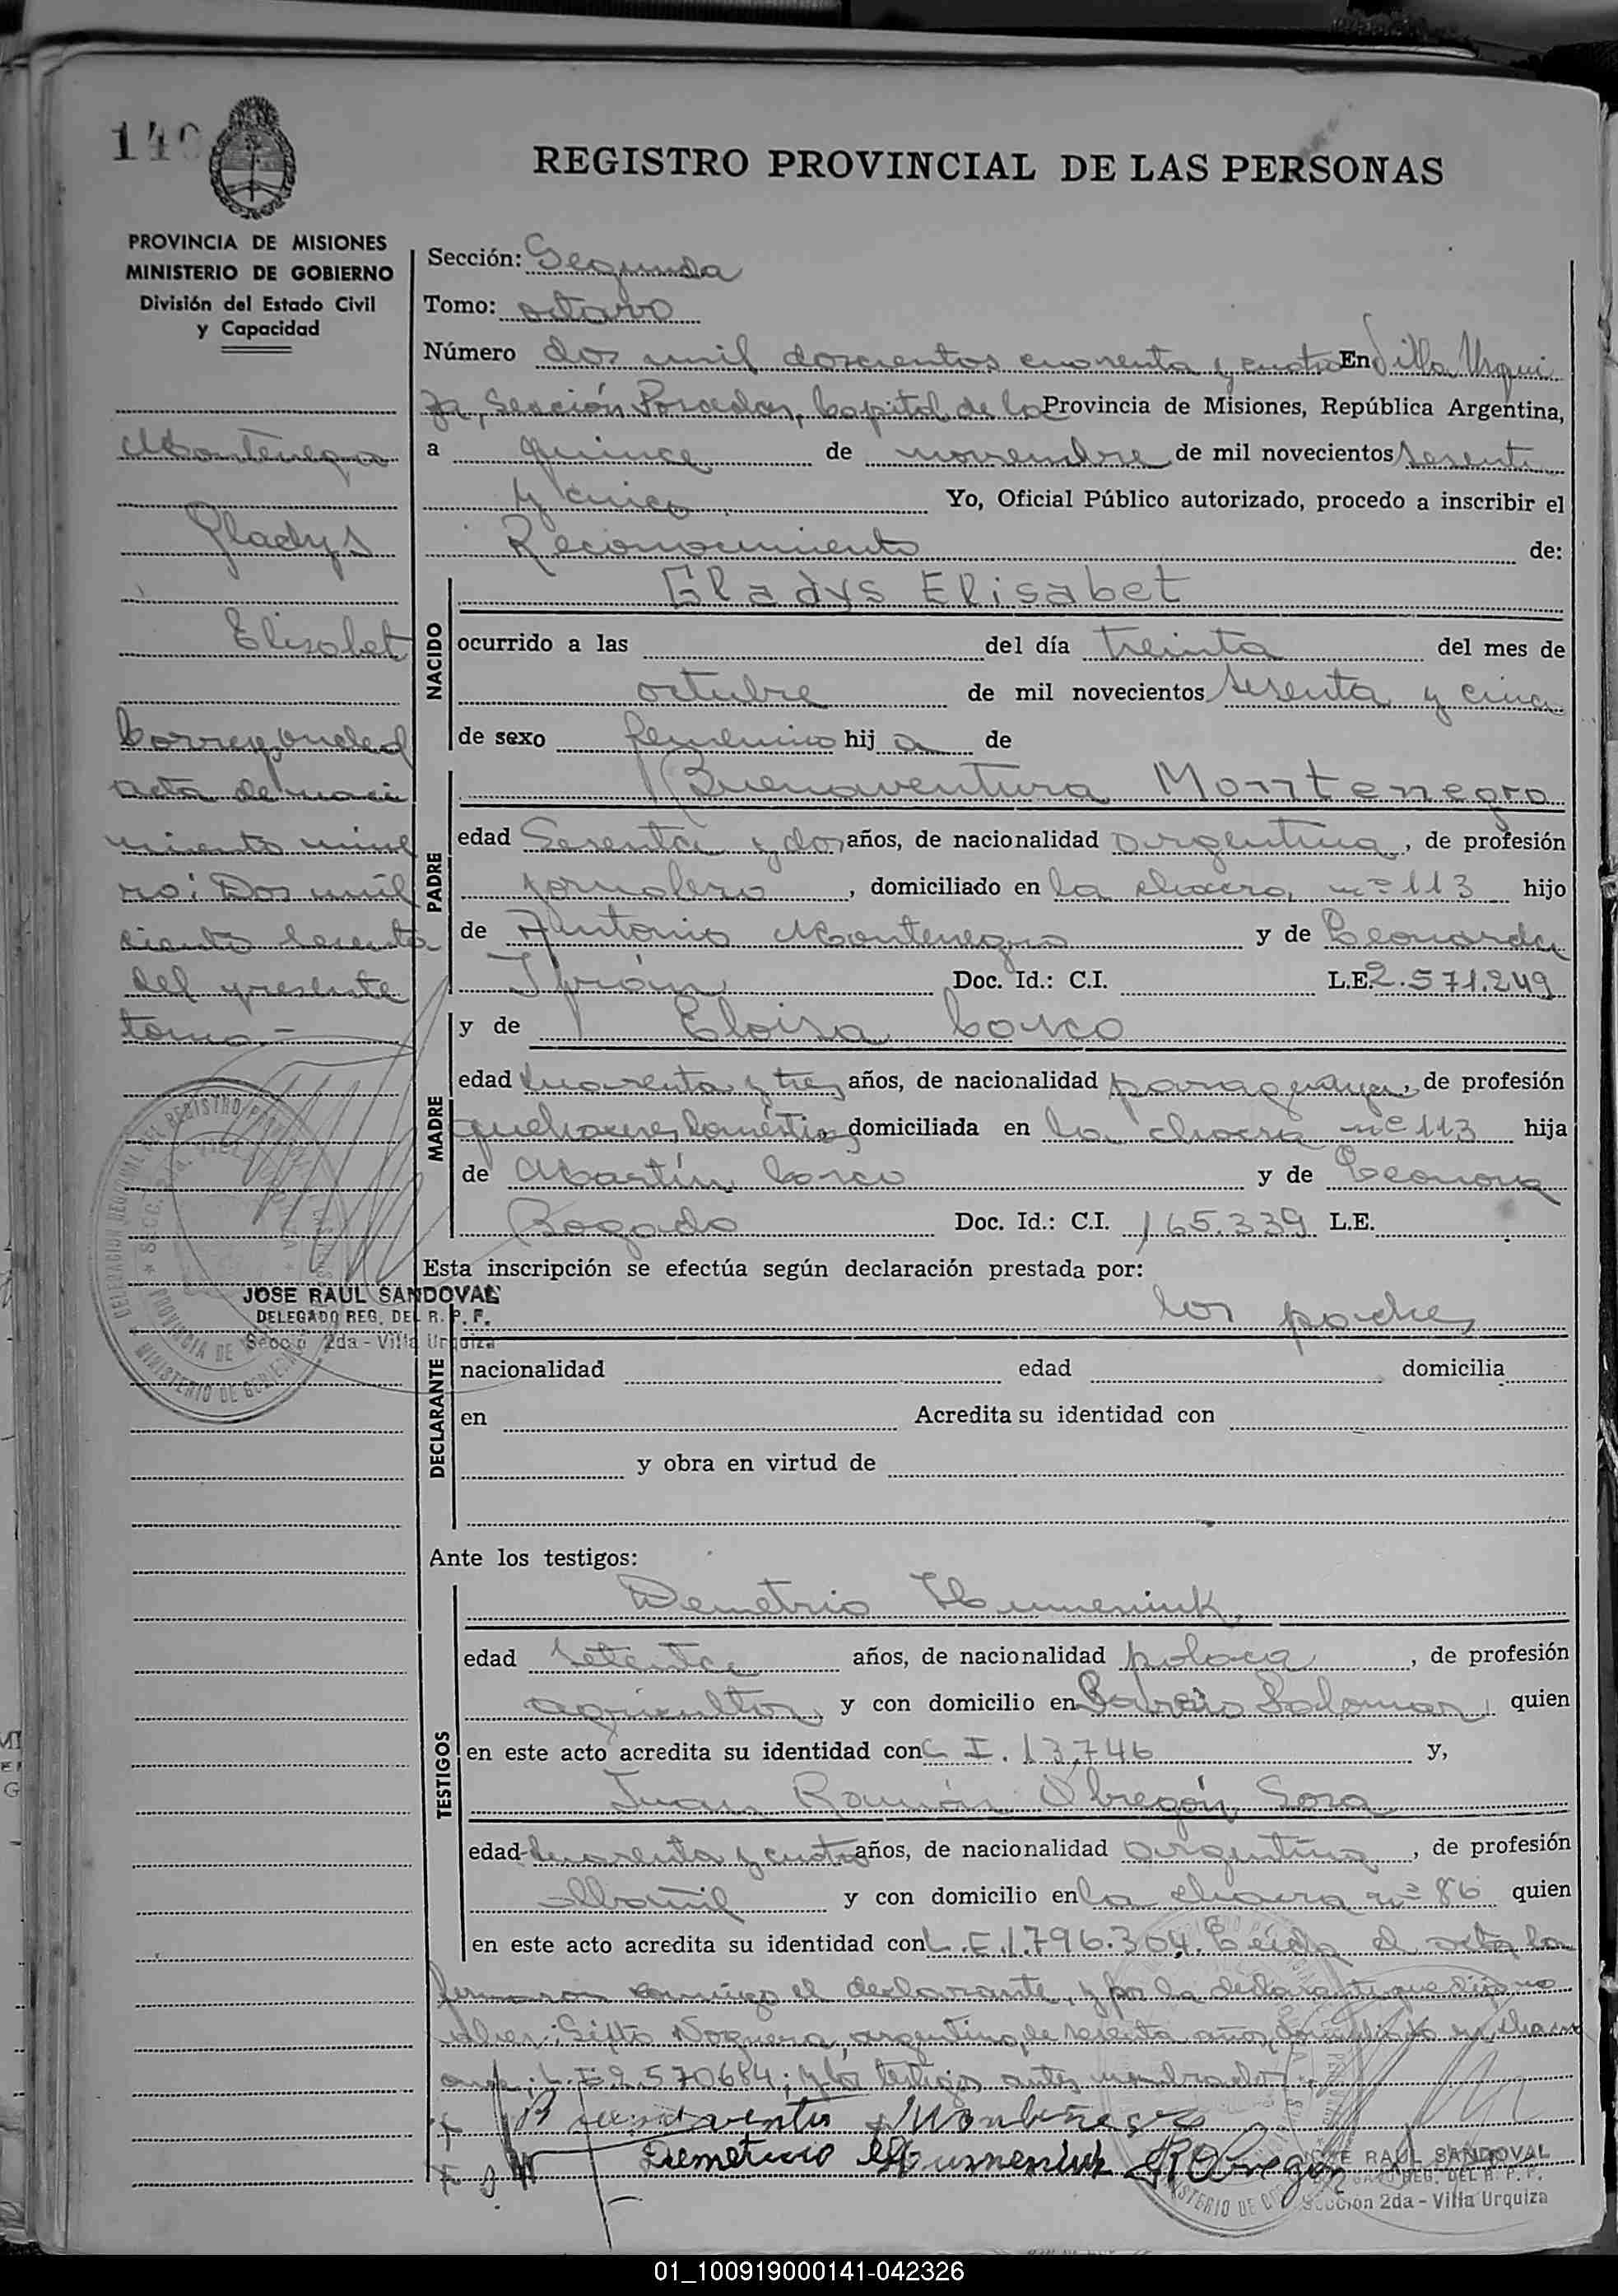 140
REGISTRO PROVINCIAL DE LAS PERSONAS
PROVINCIA DE MISIONES
MINISTERIO DE GOBIERNO
División del Estado Civil
y Capacidad
Montenegro
Gladys
Elisabet
Corresponde al
acta de naci
miento núme
ro: Dos mil
ciento sesenta
del presente
tomo.-
JOSE RAUL SANDOVAL
DELEGADO REG. DEL R. P. P.
Sección 2da - Villa Urquiza
Sección: Segunda
Tomo: octavo
Número dos mil doscientos cuarenta y cuatro En Villa Urqui
za, Sección Posadas, Capital de la Provincia de Misiones, República Argentina,
a quince de noviembre de mil novecientos sesenta
y cinco Yo, Oficial Público autorizado, procedo a inscribir el
Reconocimiento de:
NACIDO
Gladys Elisabet
ocurrido a las del día treinta del mes de
octubre de mil novecientos sesenta y cinco
de sexo femenino hij a de
PADRE
Buenaventura Montenegro
edad Sesenta y dos años, de nacionalidad argentina, de profesión
jornalero, domiciliado en la chacra nº 113 hijo
de Antonio Montenegro y de Leonarda
Doc. Id.: C.I. L.E. 2.571.249
MADRE
y de Eloisa Casco
edad cuarenta y tres años, de nacionalidad paraguaya, de profesión
quehaceres domésticos domiciliada en la chacra nº 113 hija
de Martín Casco y de Leonora
Bogado Doc. Id.: C.I. 165.339 L.E.
Esta inscripción se efectúa según declaración prestada por:
DECLARANTE
los padres
nacionalidad edad domicilia
en Acredita su identidad con
y obra en virtud de
Ante los testigos:
TESTIGOS
Demetrio Humeniuk
edad setenta años, de nacionalidad polaca, de profesión
agricultor, y con domicilio en Barrio Palomar, quien
en este acto acredita su identidad con C. I. 13.746 y,
Juan Ramón Obregón Sosa
edad cuarenta y cuatro años, de nacionalidad argentina, de profesión
albañil y con domicilio en la chacra nº 86 quien
en este acto acredita su identidad con L.E. 1.796.304. Leída el acta la
firmaron conmigo el declarante, y por la declarante que dijo no
saber: Sixto Noguera, argentino, de sesenta años, domiciliado en chacra
L.E 2.570684; y los testigos antes nombrados
Buenaventura Montenegro
Demetrio Humeniuk
JOSE RAUL SANDOVAL
DELEGADO REG. DEL R. P. P.
Sección 2da - Villa Urquiza
01_100919000141-042326